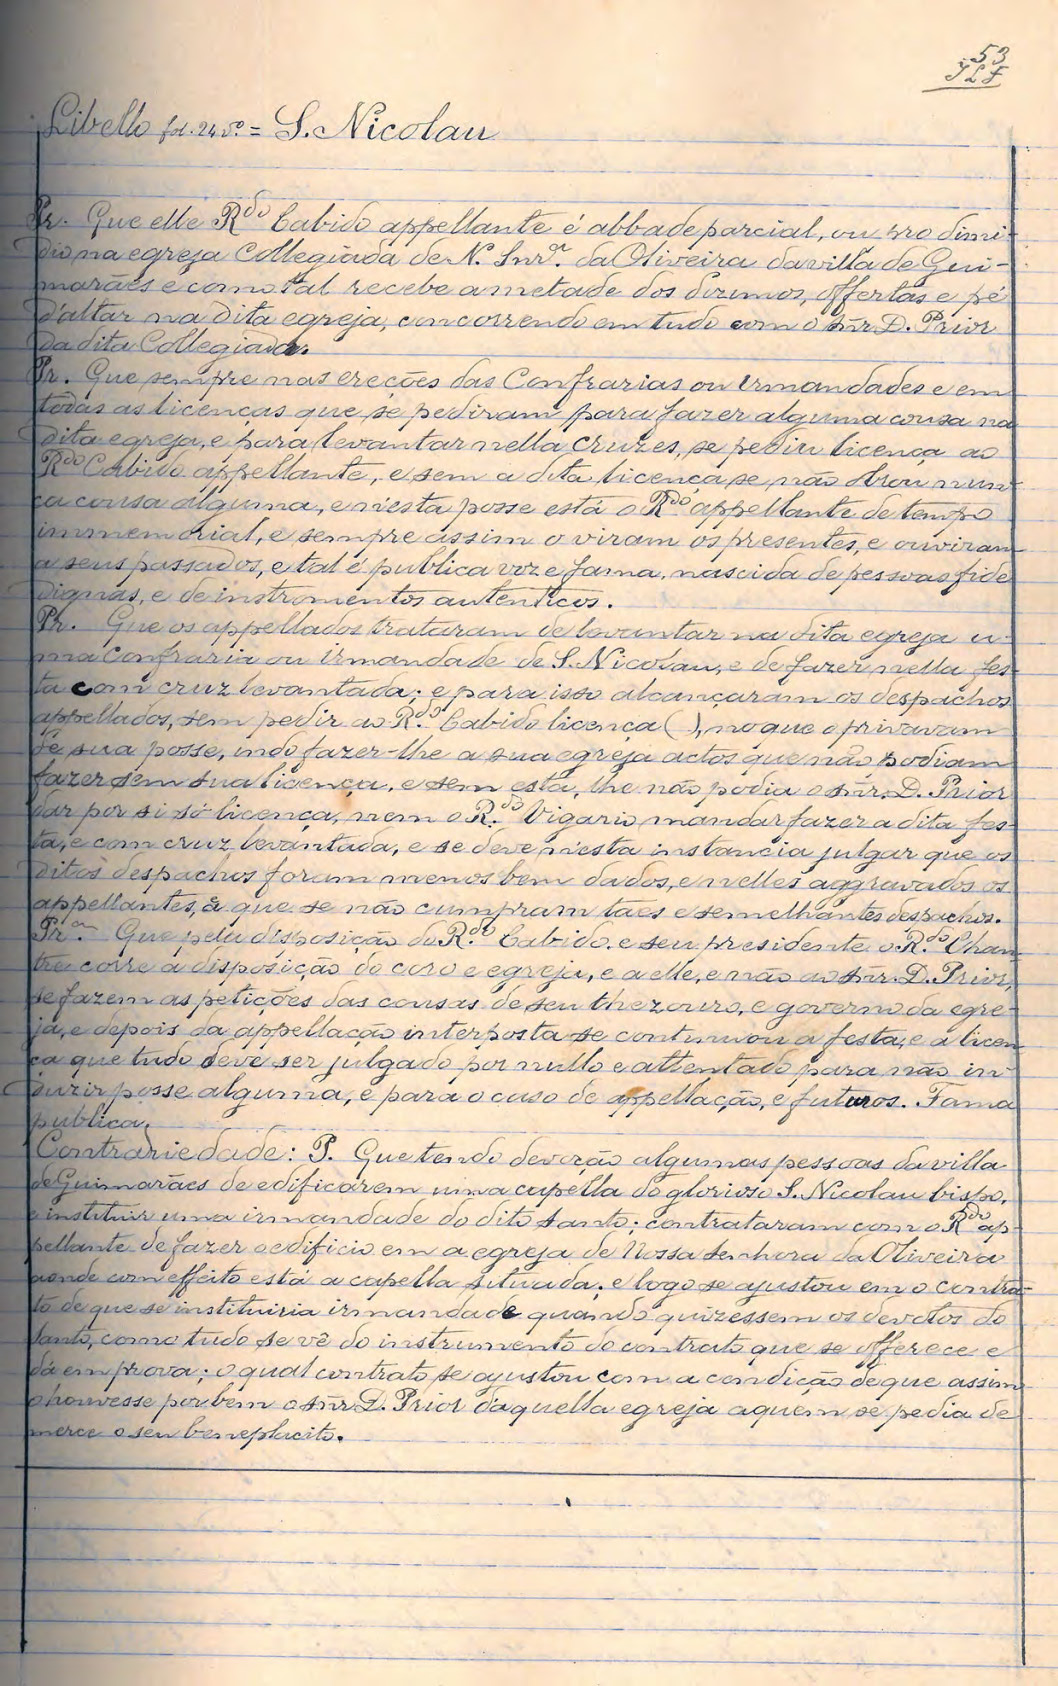 53
JLF
Libello fol. 24 vº = S. Nicolau
Pr. Que elle Rdo Cabido appellante é abbade parcial, ou pro dimi-
dio, na egreja Collegiada de N. Snrª. da Oliveira da villa de Gui-
marães e como tal recebe a metade dos dizimos, offertas e pé
d'altar na dita egreja, concorrendo em tudo com o snr. D. Prior
da dita Collegiada.
Pr. Que sempre nas ereções das Confrarias ou irmandades e em
todas as licenças que se pediram para fazer alguma cousa na
dita egreja, e para levantar nella cruzes, se pediu licença ao
Rdo Cabido appellante, e sem a dita licença se não obrou nun-
ca cousa alguma, e n'esta posse está o Rdo appellante de tempo
immemorial, e sempre assim o viram os presentes, e ouviram
a seus passados, e tal é publica voz e fama, nascida de pessoas fide
dignas, e de instromentos autenticos.
Pr. Que os appellados trataram de levantar na dita egreja u-
ma confraria ou irmandade de S. Nicolau, e de fazer nella fes-
ta com cruz levantada; e para isso alcançaram os despachos
appellados, sem pedir ao Rdo Cabido licença ( ), no que o privavam
de sua posse, indo fazer-lhe a sua egreja actos que não podiam
fazer sem sua licença, e sem esta, lhe não podia o snr. D. Prior
dar por si só licença, nem o R.do Vigario mandar fazer a dita fes-
ta, e com cruz levantada, e se deve n'esta instancia julgar que os
ditos despachos foram menos bem dados, e nelles aggravados os
appellantes, & que se não cumpram taes e semelhantes despachos.
Pr. Que pela disposição do R.do Cabido, e seu presidente o R.do Chan-
tre corre a disposição do coro e egreja, e a elle, e não ao snr. D. Prior,
se fazem as petições das cousas de seu thezouro, e governo da egre-
ja, e depois da appellação interposta se continuou a festa, e a licen-
ça que tudo deve ser julgado por nullo e attentado para não in-
duzir posse alguma, e para o caso de appellação, e futuros. Fama
publica.
Contrariedade: P. Que tendo devoção algumas pessoas da villa
de Guimarães de edificarem uma capella do glorioso S. Nicolau bispo,
e instituir uma irmandade do dito santo; contrataram com o Rdo ap-
pellante de fazer o edificio em a egreja de Nossa Senhora da Oliveira
aonde com effeito está a capella situada; e logo se ajustou em o contra-
to de que se instituiria irmandade quando quizessem os devotos do
santo, como tudo se vê do instrumento do contrato que se offerece e
dá em prova; o qual contrato se ajustou com a condição de que assim
o houvesse por bem o snr. D. Prior daquella egreja a quem se pedia de
merce o seu beneplacito.